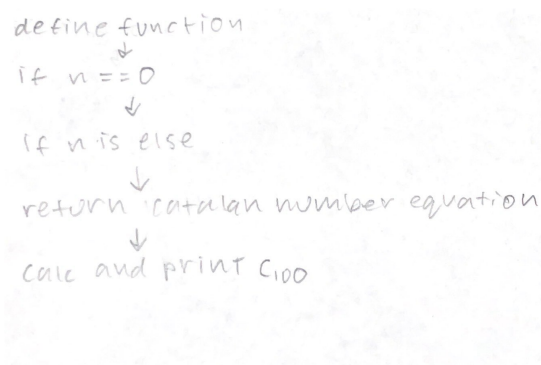 define function
↓
if n == 0
↓
if n is else
↓
return catalan number equation
↓
calc and print C₁₀₀